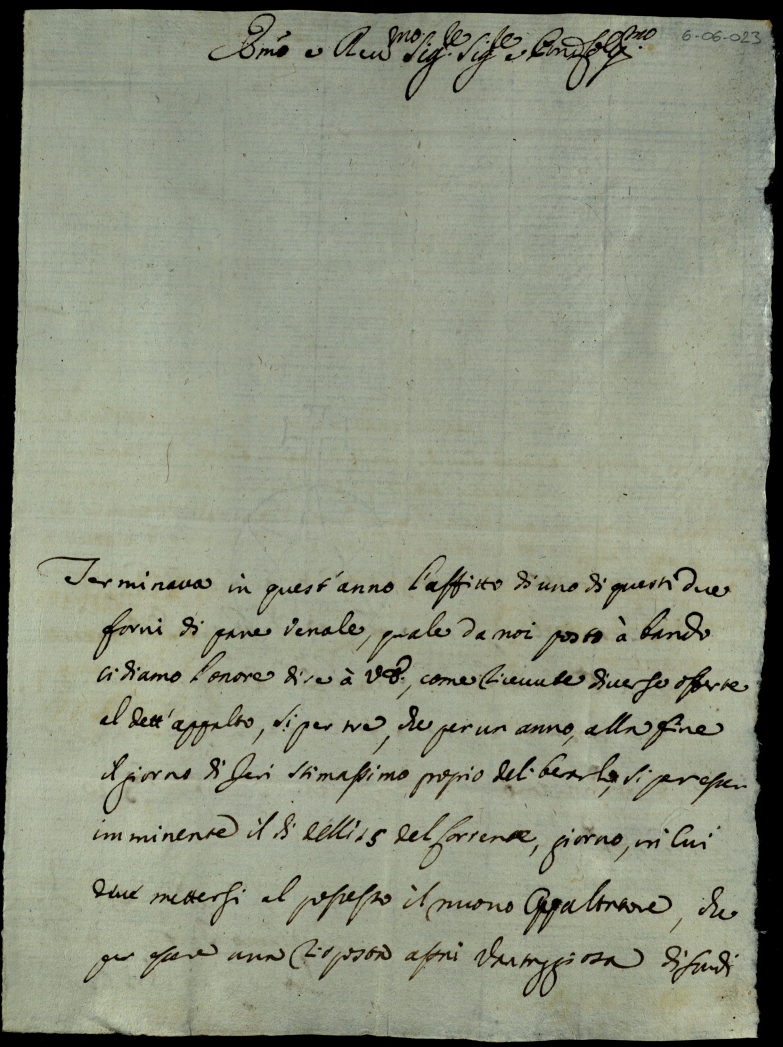 6-06-023
Emo e Reũmo Sigre Sigre e Pron Colmo
Terminava in quest'anno l'affitto di uno di questi due
forni di pane venale, quale da noi posto à bando
ci diamo l'onore dire à V.E., come ricevute diverse offerte
al dett'appalto, si per tre, che per un anno, alla fine
il giorno di Jeri stimassimo proprio deliberarlo, si per esser
imminente il dì delli 15 del corrente, giorno, in cui
deve mettersi al possesso il nuovo Appaltatore, che
per essere una risposta assai vantaggiosa di scudi